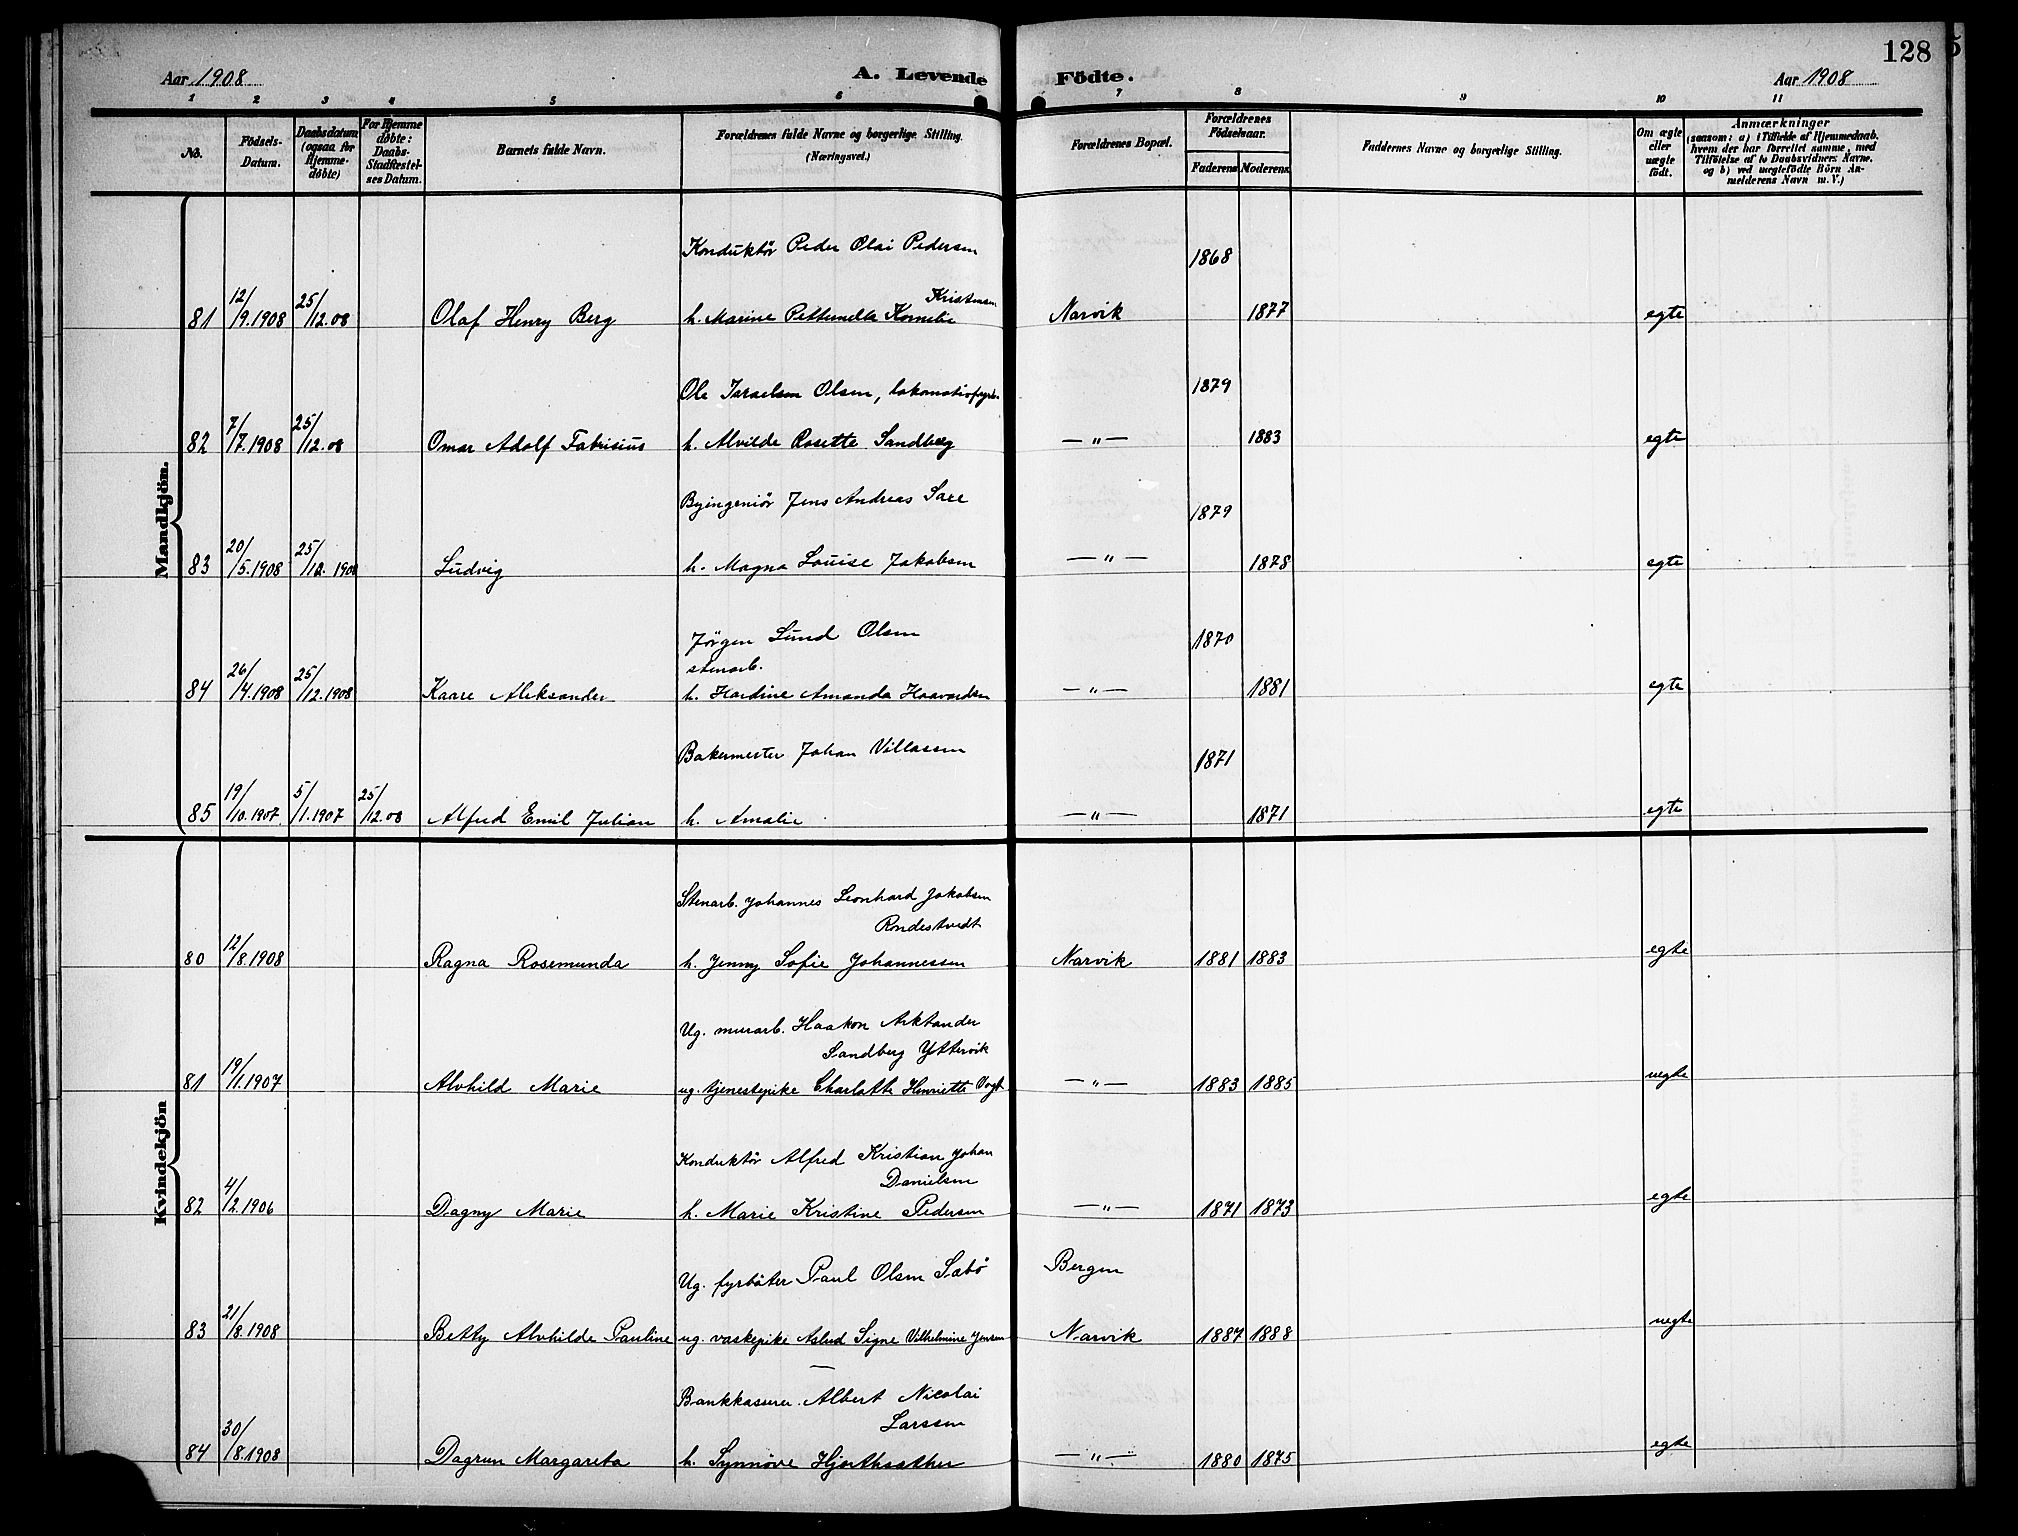 128
Aar 1908 A. Levende Födte. Aar 1908
1 2 3 4 5 6 7 8 9 10 11
No.
Födsels-
Datum.
Daabsdatum
(ogsaa for
Hjemme-
döbte)
For Hjemme
döbte:
Daabs-
Stadfæstel-
ses Datum.
Barnets fulde Navn.
Forældrenes fulde Navne og borgerlige Stilling.
(Næringsvei.)
Forældrenes Bopæl.
Forældrenes
Födselsaar.
Faderens Moderens
Faddernes Navne og borgerlige Stilling.
Om ægte
eller
uægte
födt.
Anmærkninger
(saasom: a) i Tilfælde af Hjemmedaab.
hvem der har forrettet samme, med
Tilföielse af to Daabsvidners Navne.
og b) ved uægtefödte Börn An-
melderens Navn m. V.)
Mandkjön.
Konduktör Peder Olai Pedersen 1868
12/ 25/ Kristensen
81 /9.1908 /12.08 Olaf Henry Berg h. Marine Kornelie Narvik 1877 egte
Ole Israelsen Olsen, 1879
7/ 25/
82 /7.1908 /12.08 Omar Adolf Fabrisius h. Alvilde Rosette Sandberg —„— 1883 egte
Byingeniör Jens Andreas Sare 1879
20/ 25/
83 /5.1908 /12.1908 Ludvig h. Magna Louise Jakobsen —„— 1878 egte
Jörgen Lund Olsen 1870
26/ 25/ stenarb.
84 /4.1908 /12.1908 Kaare Aleksander h. Hardine Amanda Haavardsen —„— 1881 egte
Bakermester Johan Villassen 1871
19/ 5/ 25/
85 /10.1907 /1.1907 /12.08 Alfred Emil Julian h. Amalie —„— 1871 egte
Kvindekjön
Stenarb. Johannes Leonhard Jakobsen
12/ Rondestvedt
80 /8.1908 Ragna Rosemunda h. Jenny Sofie Johannessen Narvik 1881 1883 egte
Ug. murarb. Haakon Arktander
19/ Sandberg Yttervik
81 /1.1907 Alvhild Marie ug. tjenestepike Charlotte Henriette Vogt —„— 1883 1885 uegte
Konduktör Alfred Kristian Johan
4/ Danielsen
82 /2.1906 Dagny Marie h. Marie Kristine Pedersen —„— 1871 1873 egte
Ug. fyrböter Paul Olsen Sæbö Bergen
21/
83 /8.1908 Betty Alvhilde Pauline ug. vaskepike Aslud Signe Vilhelmine Jensen Narvik 1887 1888 uegte
—
Bankkasserer Albert Nicolai
30/ Larssen
84 /8.1908 Dagrun Margareta h. Synnöve Hjorthsæther —„— 1880 1875 egte